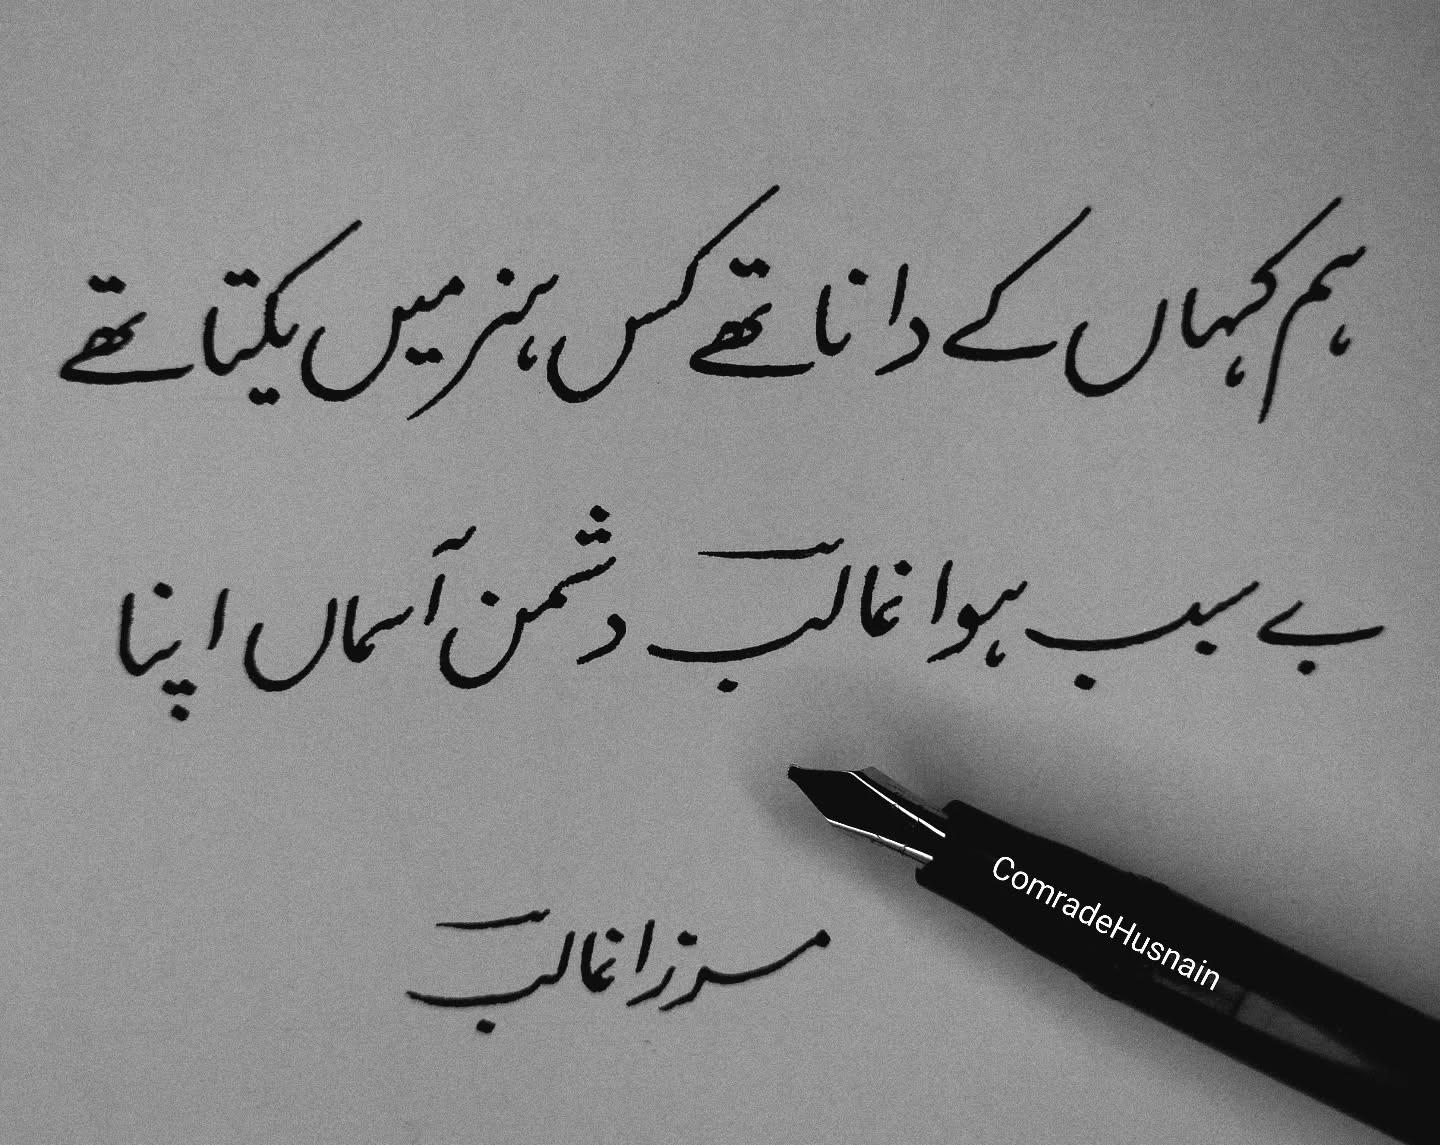 ہم کہاں کے دانا تھے کس ہنر میں یکتا تھے
بے سبب ہوا غالبؔ دشمن آسماں اپنا
مرزا غالبؔ
ComradeHusnain